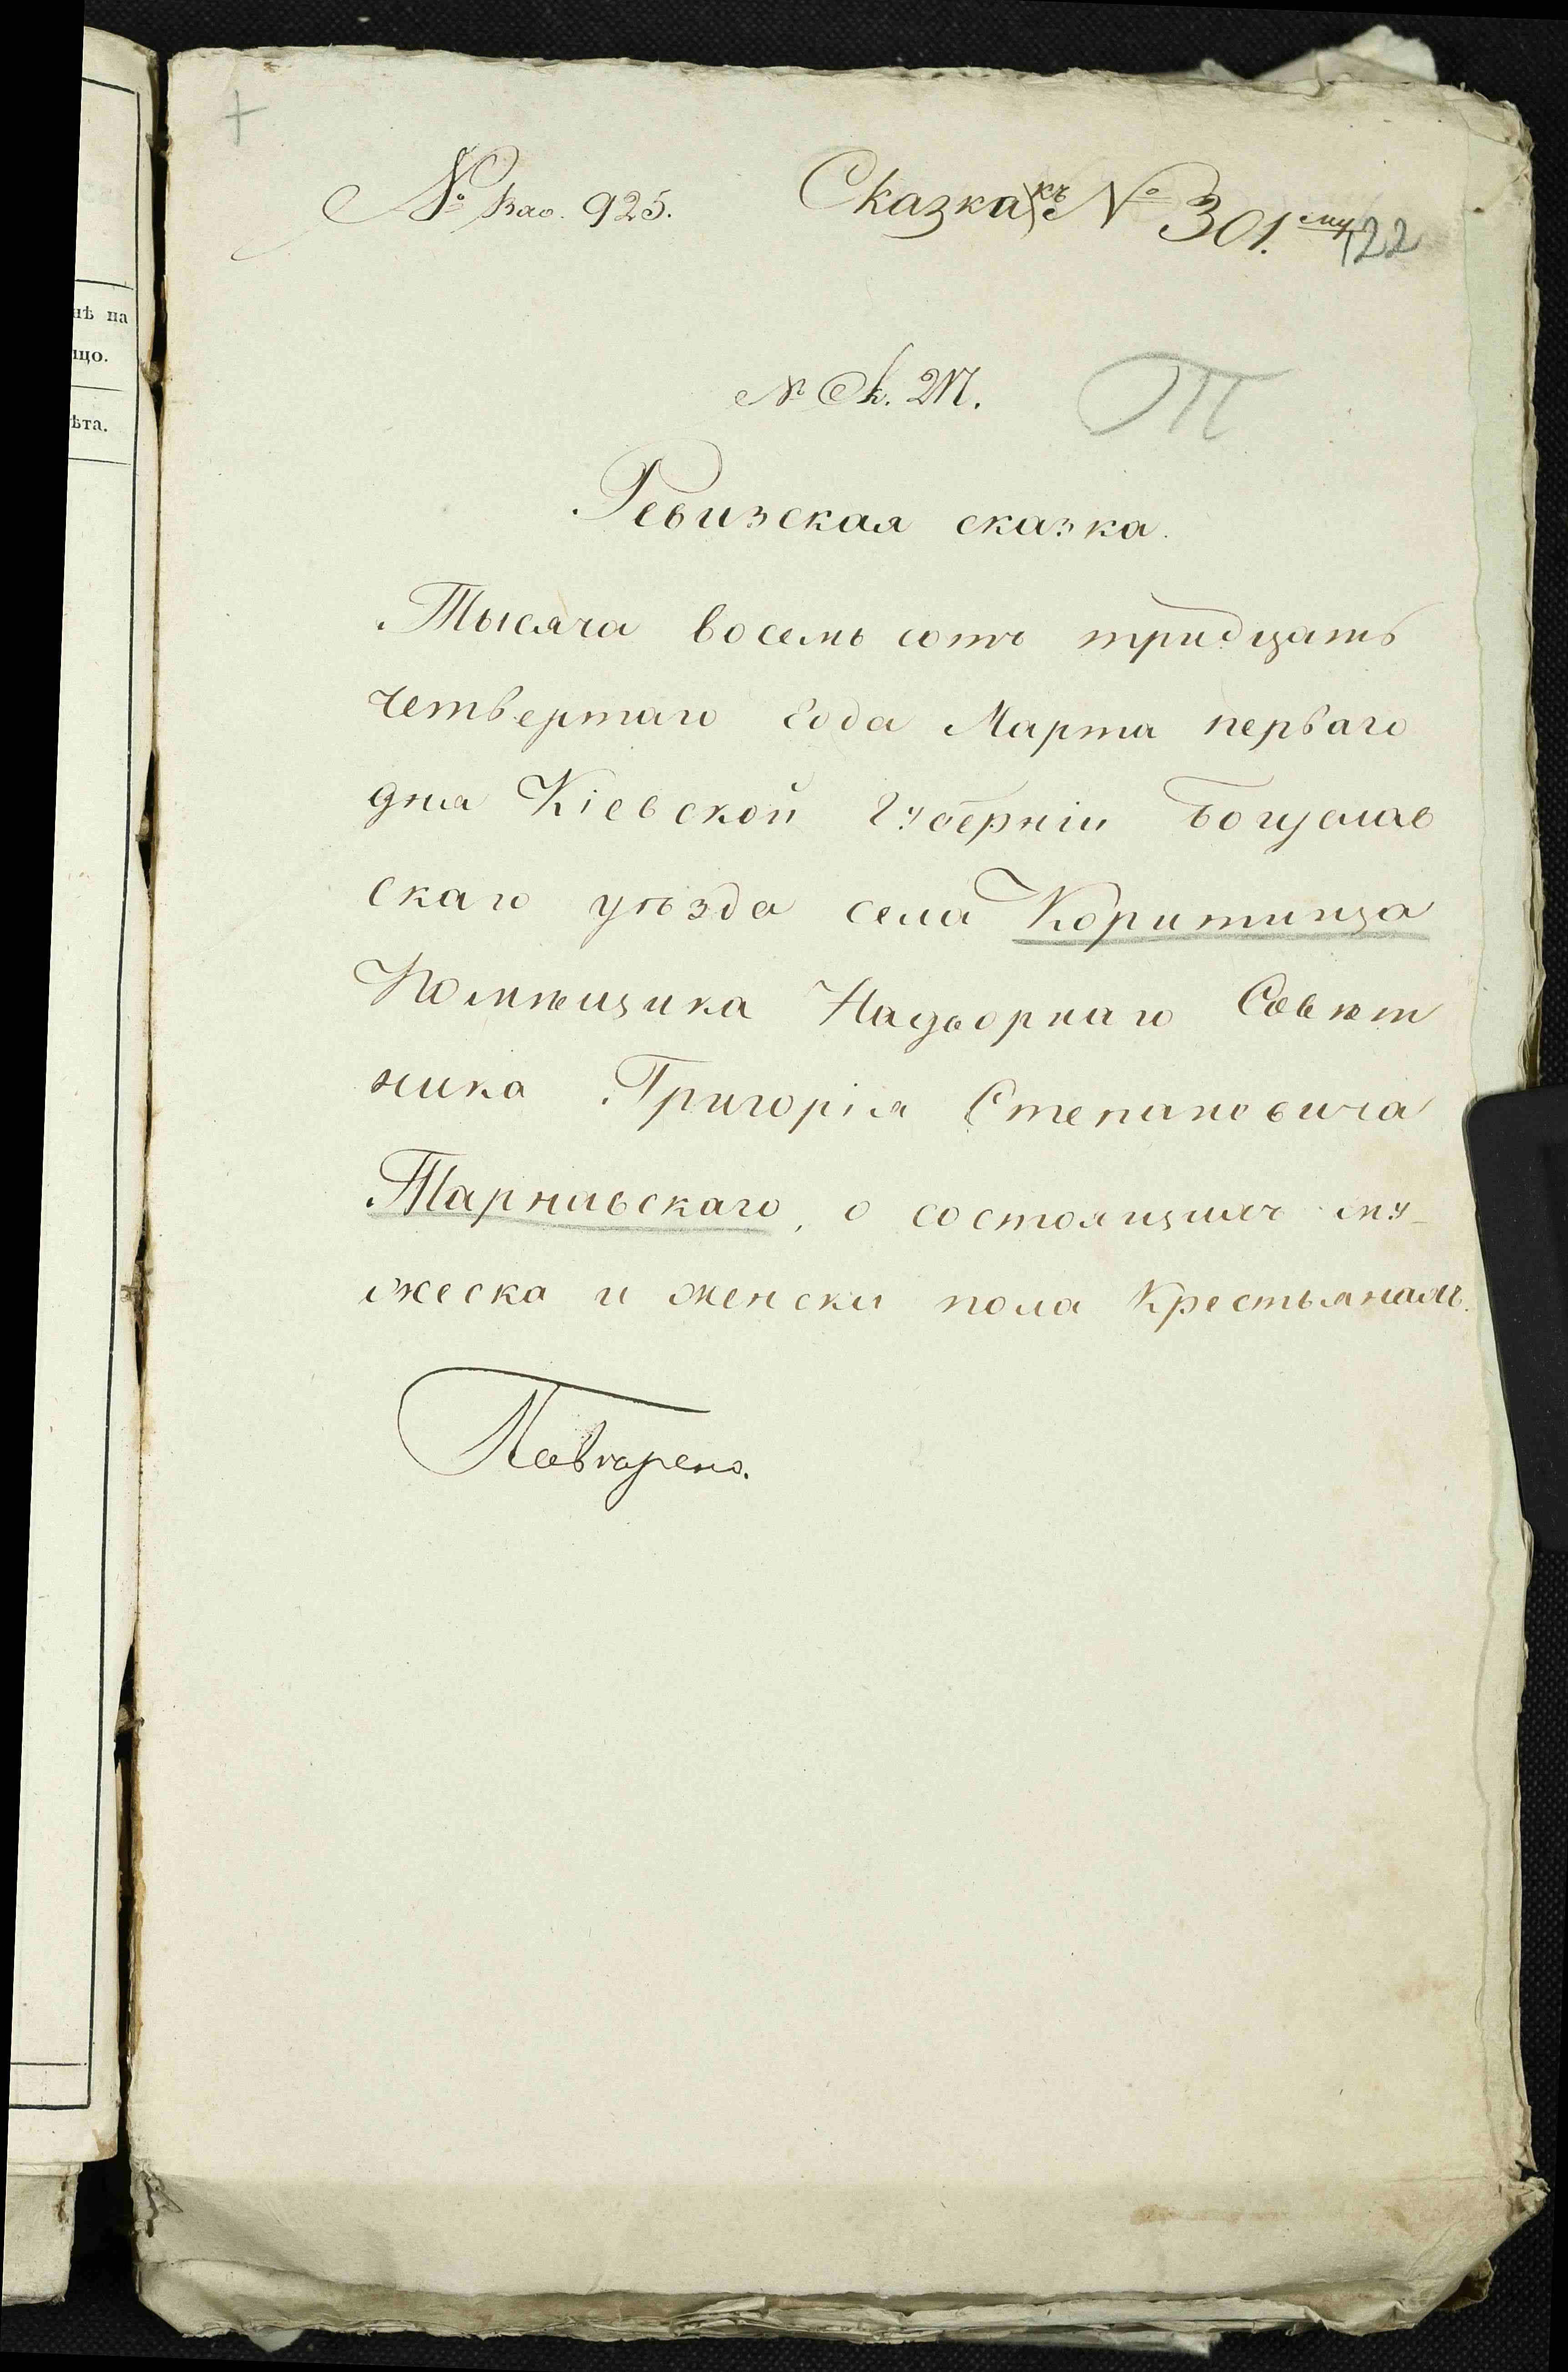 нѣ на
цо.
ѣта.
№ 925.
Сказка къ № 301.му
122
№
П
Ревизская сказка.
Тысяча восемь сотъ тридцать
четвертаго года Марта перваго
дня Кіевской Губерніи Богуслав
скаго уѣзда села Коритища
Помѣщика Надворнаго Совѣт
ника Григорія Степановича
Тарнавскаго, о состоящихъ му-
жеска и женска пола Крестьянахъ.